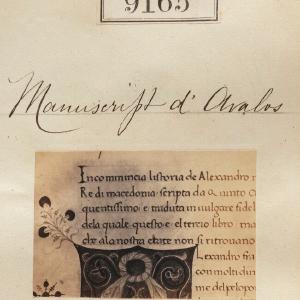 9165
Manuscript d'Avalos
Incomincia listoria de Alexandro
Re di macedonia scripta da Q uinto C
quentissimo e traduta in vulgare fidel
dela quale questo e el tercio libro ma
che ala nostra etate non si ritrouano
lexandro fra
con molti du
me del pelopo